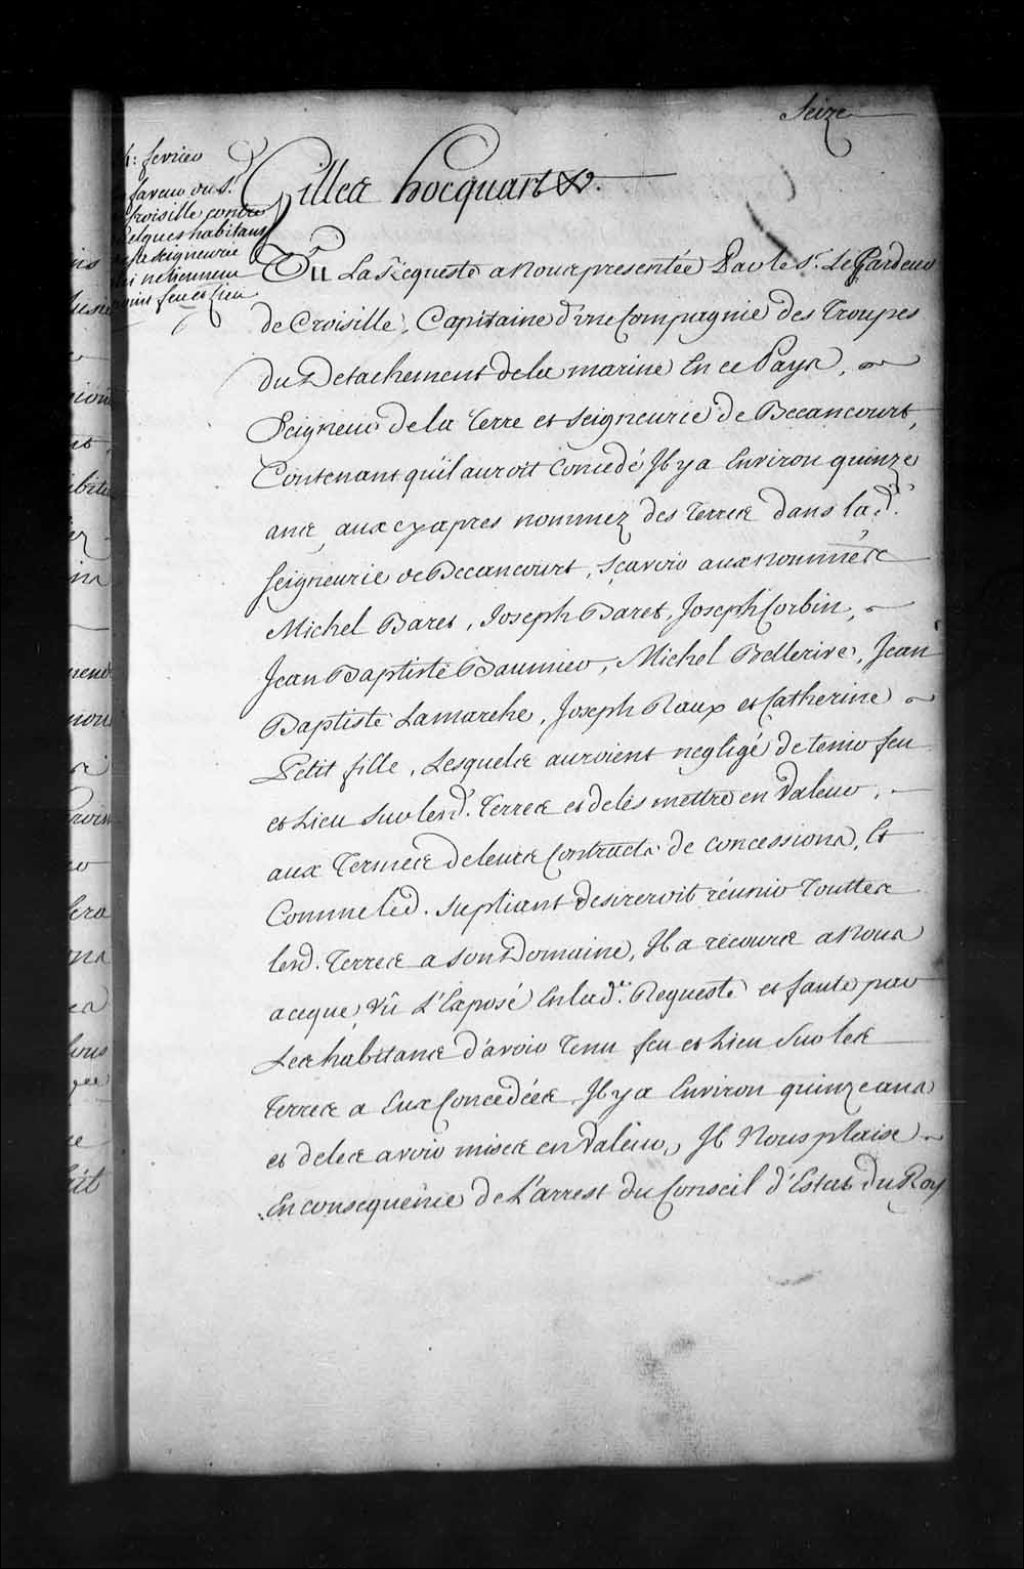 Seize
4: fevrier
faveur du Sr.
Croisille contre
quelques habitans
de sa seigneurie
qui ne tiennent
point feu et Lieu
Gilles hocquart &c.
Vu La Requeste a Nous presentée Par le Sr. Le Gardeur
de Croisille, Capitaine d'une Compagnie des Troupes
du Detachement de la marine En ce Pays,
Seigneur de la Terre et Seigneurie de Becancourt,
Contenant qu'il auroit Concedé Il y a Environ quinze
ans, aux cy apres nommez des Terres dans lad.
Seigneurie de Becancourt, sçavoir aux nommés
Michel Baret, Joseph Baret, Joseph Corbin,
Jean Baptiste Baumier, Michel Bellerive, Jean
Baptiste Lamarche, Joseph Raux et Catherine
Petit fille, Lesquels auroient negligé de tenir feu
et Lieu sur lesd. Terres et de les mettre en Valeur,
aux Termes de leurs Contracts de concessions, Et
Comme led. supliant desireroit réunir Touttes
lesd. Terres a son Domaine, Il a recours a Nous
a ceque, Vû L'Exposé En lad. Requeste et faute par
Les habitans d'avoir Tenu feu et Lieu Sur les
Terres a Eux Concedées Il y a Environ quinze ans
et de les avoir mises en Valeur, Il Nous plaise
En consequence de L'arrest du Conseil d'Estat du Roy